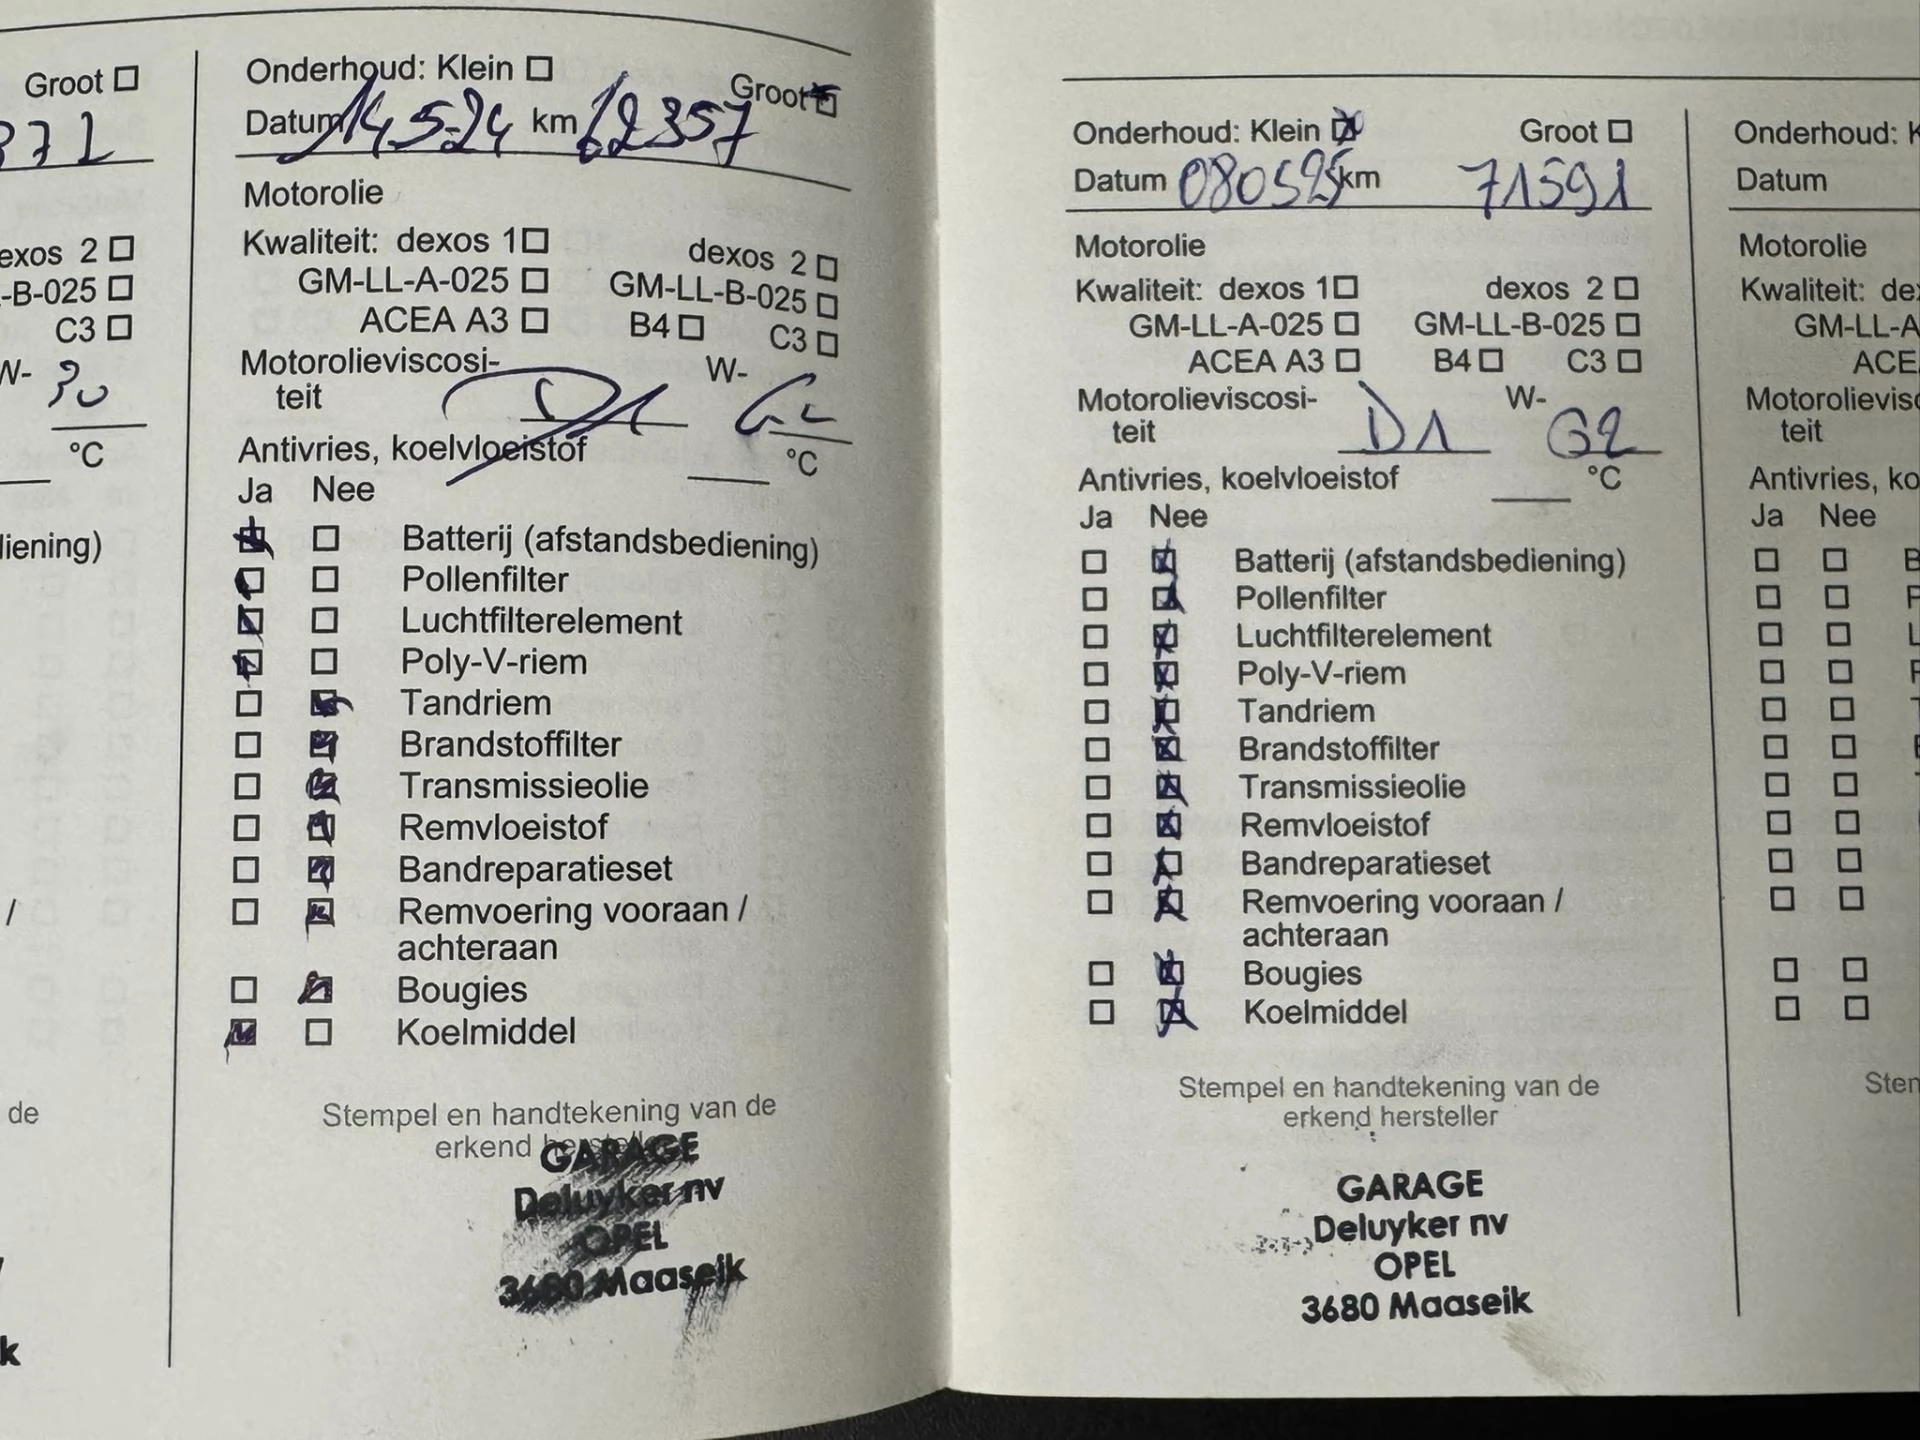 Groot
371
exos 2
-B-025
C3
W- 30
°C
diening)
/
de
k
Onderhoud: Klein
Groot
Datum 14 5-24 km 62357
Motorolie
Kwaliteit: dexos 1
dexos 2
GM-LL-A-025
GM-LL-B-025
ACEA A3
B4
C3
Motorolieviscosi-
W-
teit
D1
Antivries, koelvloeistof
°C
Ja Nee
Batterij (afstandsbediening)
Pollenfilter
Luchtfilterelement
Poly-V-riem
Tandriem
Brandstoffilter
Transmissieolie
Remvloeistof
Bandreparatieset
Remvoering vooraan /
achteraan
Bougies
Koelmiddel
Stempel en handtekening van de
erkend hersteller
GARAGE
Deluyker nv
OPEL
3680 Maaseik
Onderhoud: Klein
Groot
Datum 080525 km 71591
Motorolie
Kwaliteit: dexos 1
dexos 2
GM-LL-A-025
GM-LL-B-025
ACEA A3
B4
C3
Motorolieviscosi-
W-
teit
D1 G2
Antivries, koelvloeistof
°C
Ja Nee
Batterij (afstandsbediening)
Pollenfilter
Luchtfilterelement
Poly-V-riem
Tandriem
Brandstoffilter
Transmissieolie
Remvloeistof
Bandreparatieset
Remvoering vooraan /
achteraan
Bougies
Koelmiddel
Stempel en handtekening van de
erkend hersteller
GARAGE
Deluyker nv
OPEL
3680 Maaseik
Onderhoud: K
Datum
Motorolie
Kwaliteit: de
GM-LL-A
ACE
Motorolievisc
teit
Antivries, ko
Ja Nee
B
P
L
P
T
B
T
Sten